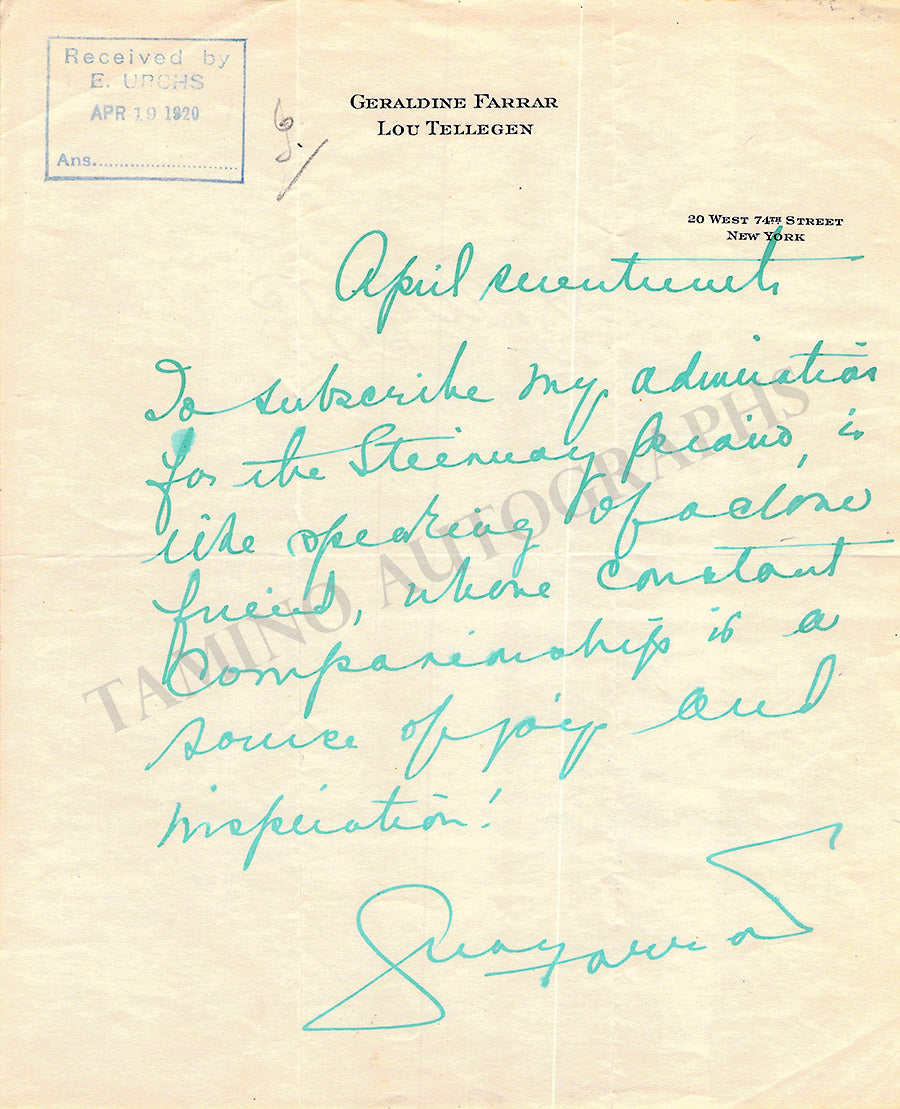 Received by
E. URCHS
APR 19 1920
Ans.............................
GERALDINE FARRAR
LOU TELLEGEN
20 WEST 74TH STREET
NEW YORK
April seventeenth
To subscribe my admiration
for the Steinway piano, is
like speaking of a close
friend, whose constant
companionship is a
source of joy and
inspiration!
Farrar
TAMINO AUTOGRAPHS